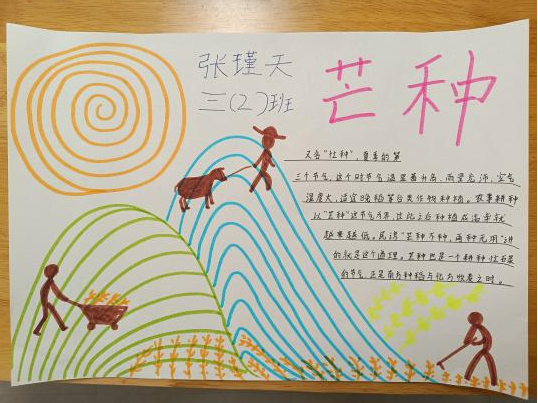 张瑾天
三(2)班
芒种
又名“忙种”，夏季的第
三个节气，这个时节气温显著升高、雨量充沛、空气
湿度大，适宜晚稻等谷类作物种植。农事耕种
以“芒种”这节气为界，过此之后种植成活率就
越来越低。民谚“芒种不种，再种无用”讲
的就是这个道理。芒种也是一个耕种忙碌
的节气，正是南方种稻与北方收麦之时。